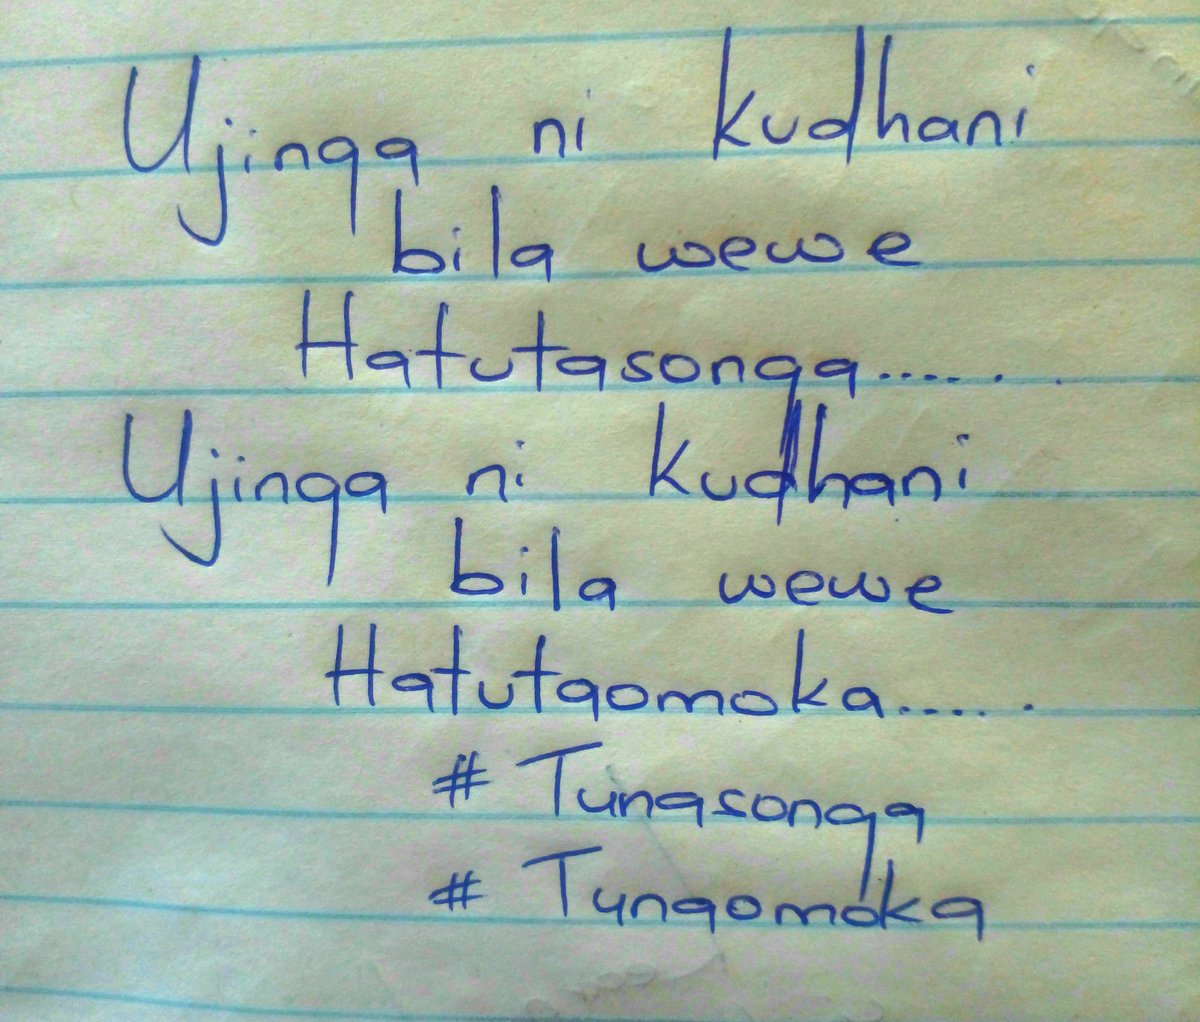 Ujinga ni kudhani
bila wewe
Hatutasonga......
Ujinga ni kudhani
bila wewe
Hatutaomoka......
# Tunasonga
# Tunaomoka